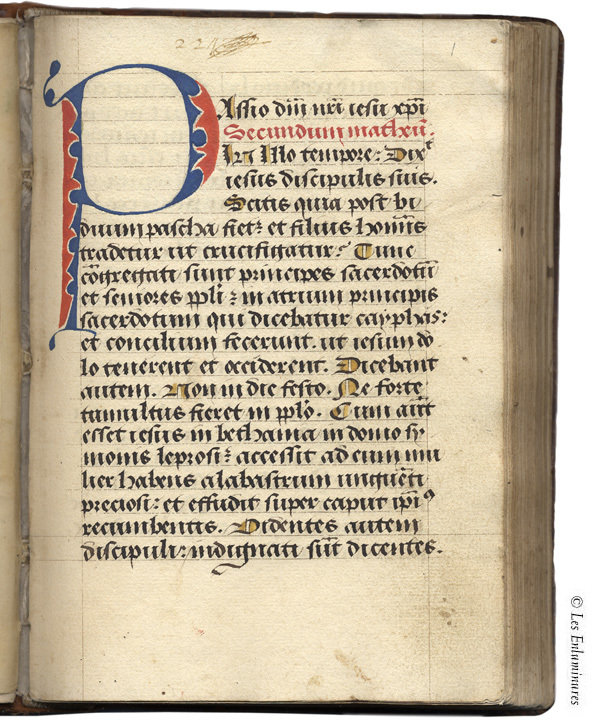 221
1
PAssio dñi nr̃i iesu xp̃i
Secundum matheũ.
In Illo tempore: Dixᵗ
iesus discipulis suis.
Scitis quia post bi
duum pascha fiet: et filius hoĩs
tradetur ut crucifigatur: Tunc
cõgregati sunt principes sacerdotũ
et seniores ppl̃i: in atrium principis
sacerdotum qui dicebatur cayphas:
et concilium fecerunt. ut iesum do
lo tenerent et occiderent. Dicebant
autem. Non in die festo. Ne forte
tumultus fieret in ppl̃o. Cum aũt
esset iesus in bethania in domo sy
monis leprosi: accessit ad eum mu
lier habens alabastrum unguẽti
preciosi: et effudit super caput ip̃iꝰ
recumbentis. Videntes autem
discipuli: indignati sũt dicentes.
© Les Enluminures